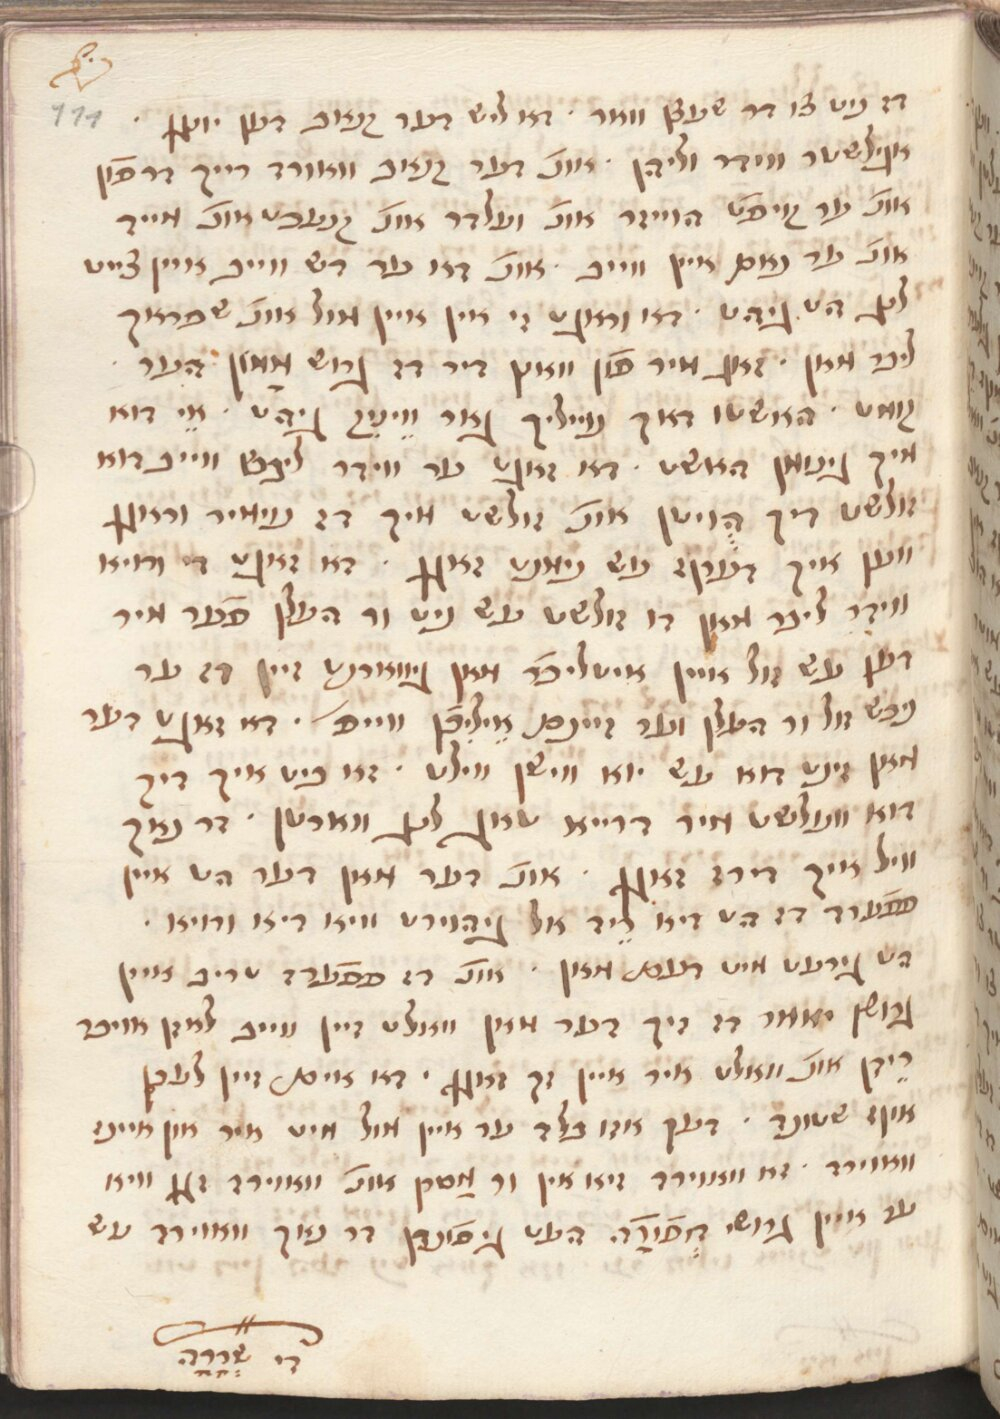 111
דז ניט צו דר שעצן וואר . דא ליש דער קנאב דען יונגן .
אונ' דער קנאב ווארד רייך דר פון
אונ' ער קויפט הוייזר אונ' ועלדר אונ' קנעכט אונ' מייד
אונ' ער נאם איין ווייב . אונ' דא ער דש ווייב איין צייט
לנג הט גיהט . דא וראגט זי אין איין מול אונ' שפראך
ליבר מאן . זאג מיר פון וואז דיר דז גרוש ממון הער .
האשטו דאך נוייליך גאר וויניג גיהט . אי דוא
מיך גינומן האשט . דא זאגט ער ווידר ליבש ווייב דוא
זולשט דיך הויטן אונ' זולשט מיך דז נימיר וראגן
ווען איך דערפז עש נימנט זאגן . דא זאגט די ורויא
ווידר ליבר מאן דו זולשט עש ניט ור העלן פער מיר
דען עש זול איין איטליכר מאן גיווארנט זיין דז ער
ניכש זול ור העלן וער זיינם אייליכן ווייפ . דא זאגט דער
מאן זינט דוא עש יוא ווישן ווילט . זא ביט איך דיך
דוא וועלשט מיר דרייא טאג לנג ווארטן . דר נאך
וויל איך דירז זאגן . אונ' דער מאן דער הט איין
פפערד דז הט דיא ריד אל גיהוירט וויא דיא ורויא .
הט גירעט מיט דעם מאן . אונ' דז פפערד טריב איין
גרושן יאמר דז זיך דער מאן וואלט זיין ווייב לאזן אויבר
רידן אונ' וואלט איר איין זך זאגן . דא איים זיין לעבן
אונז שטונד . דען אזו בלד ער איין מול מיט איר און איינז
ווארד . זא ווארד זיא אין ור מסרן אונ' ווארד זגן וויא
ער איין גרושי חפורה העט גיפונדן דר נאך ווארד עש
די שררה